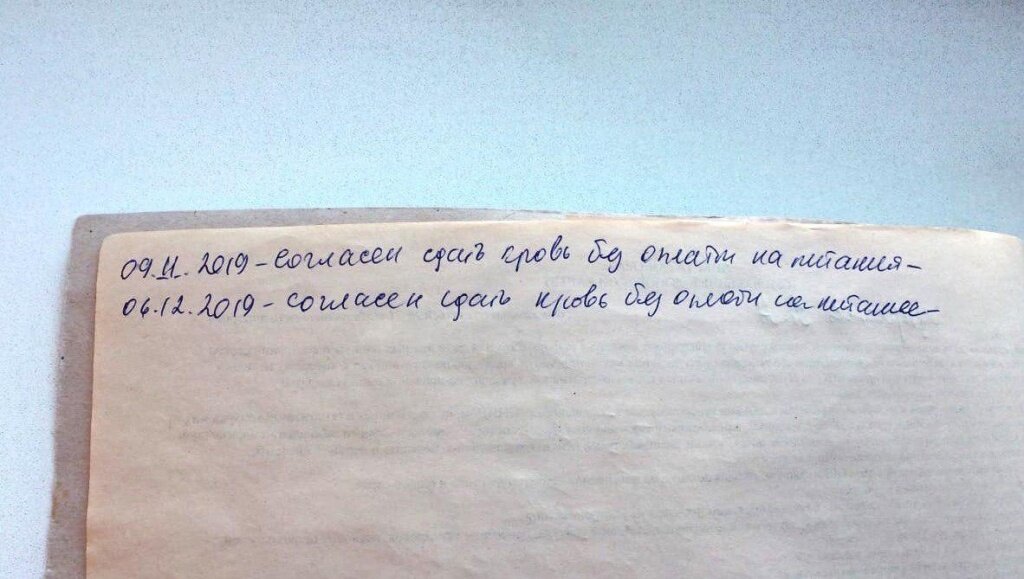 09.11.2019 - Согласен сдать кровь без оплаты на питания -
06.12.2019 - Согласен сдать кровь без оплаты на питание -